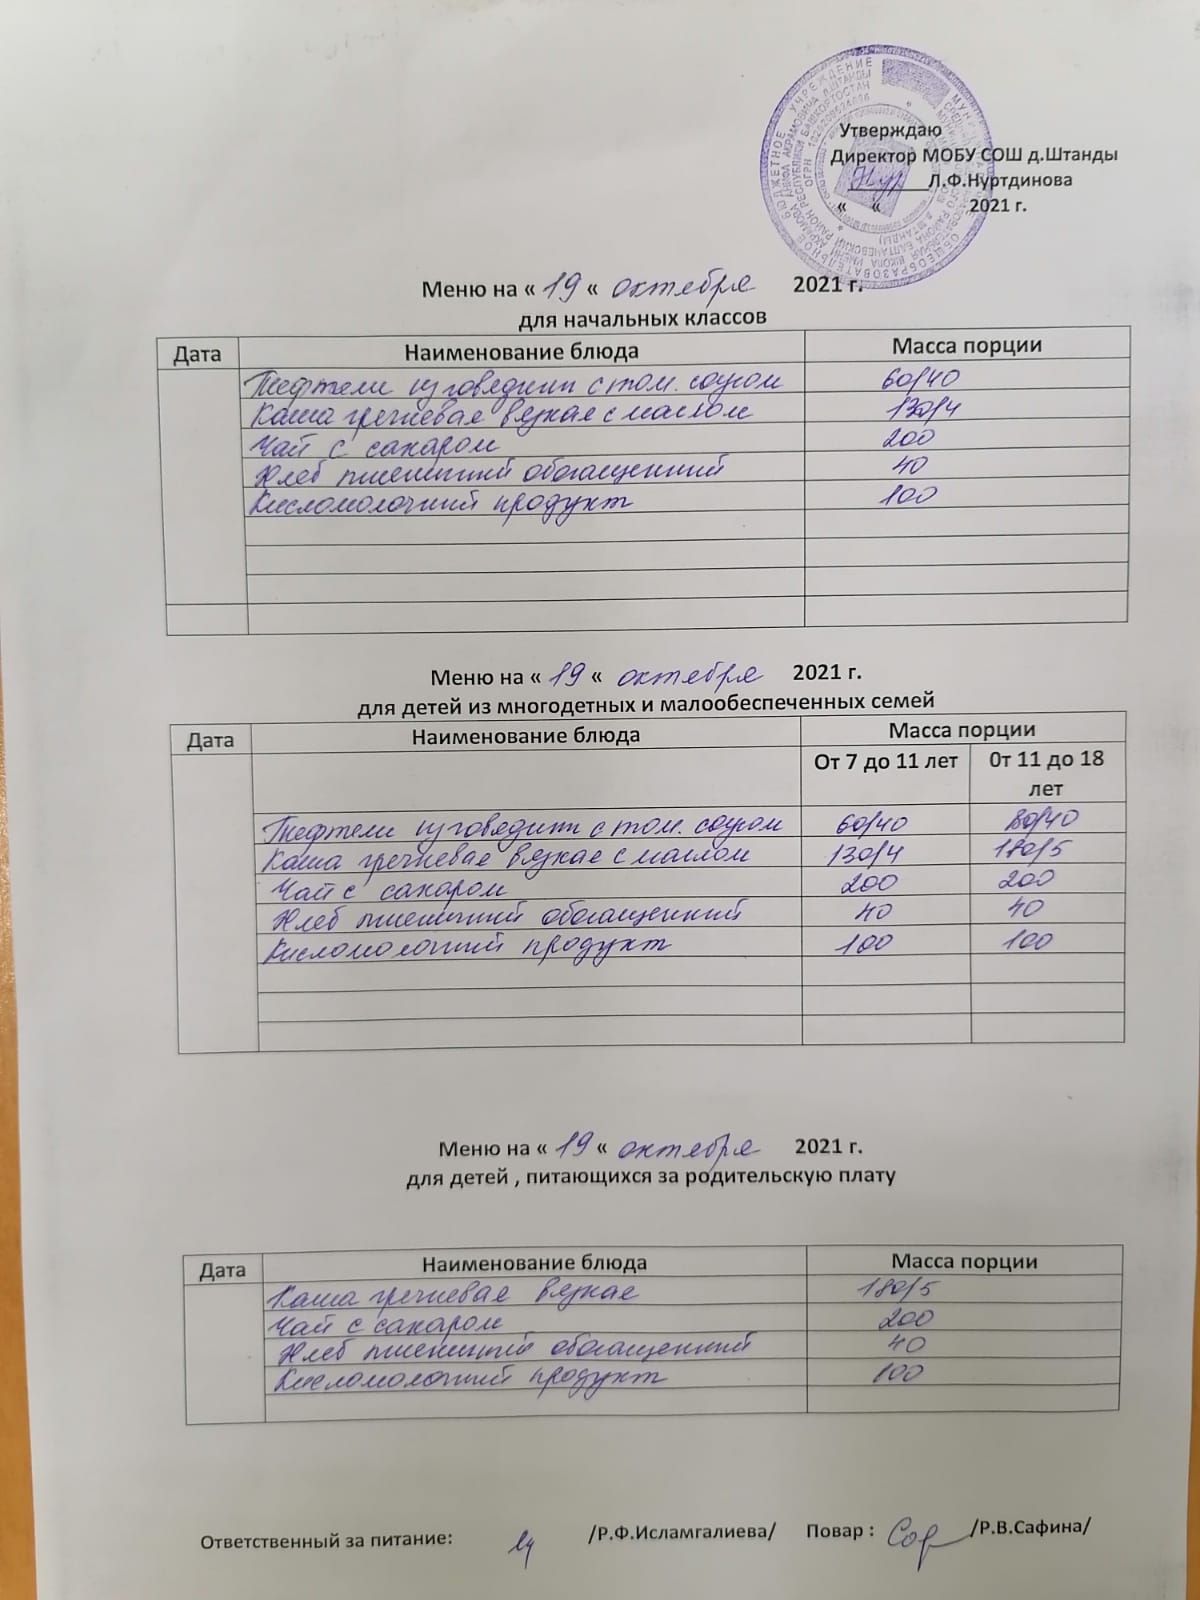 Утверждаю
Директор МОБУ СОШ д.Штанды
Л.Ф.Нуртдинова
« « 2021 г.
Меню на « 19 « октября 2021 г.
для начальных классов
Дата Наименование блюда Масса порции
Тефтели из говядины с том. соусом 60/40
Каша гречневая вязкая с маслом 130/4
Чай с сахаром 200
Хлеб пшеничный обогащенный 40
Кисломолочный продукт 100
Меню на « 19 « октября 2021 г.
для детей из многодетных и малообеспеченных семей
Дата Наименование блюда Масса порции
От 7 до 11 лет 0т 11 до 18
лет
Тефтели из говядины с том. соусом 60/40 80/40
Каша гречневая вязкая с маслом 130/4 180/5
Чай с сахаром 200 200
Хлеб пшеничный обогащенный 40 40
Кисломолочный продукт 100 100
Меню на « 19 « октября 2021 г.
для детей , питающихся за родительскую плату
Дата Наименование блюда Масса порции
Каша гречневая вязкая 180/5
Чай с сахаром 200
Хлеб пшеничный обогащенный 40
Кисломолочный продукт 100
Ответственный за питание: /Р.Ф.Исламгалиева/ Повар : /Р.В.Сафина/